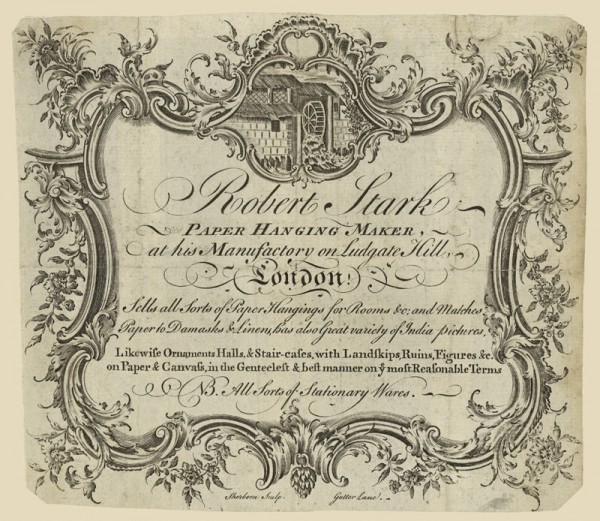 Robert Stark
Paper Hanging Maker,
at his Manufactory on Ludgate Hill,
London.
Sells all Sorts of Paper Hangings for Rooms &c; and Matches
Paper to Damasks & Linen, has also Great variety of India pictures,
Likewiſe Ornaments Halls, & Stair-caſes, with Landſkips, Ruins, Figures &c.
on Paper & Canvaſs, in the Genteeleſt & beſt manner on ẙ moſt Reaſonable Terms
NB. All Sorts of Stationary Wares.
Sherborn Sculp. Gutter Lane.